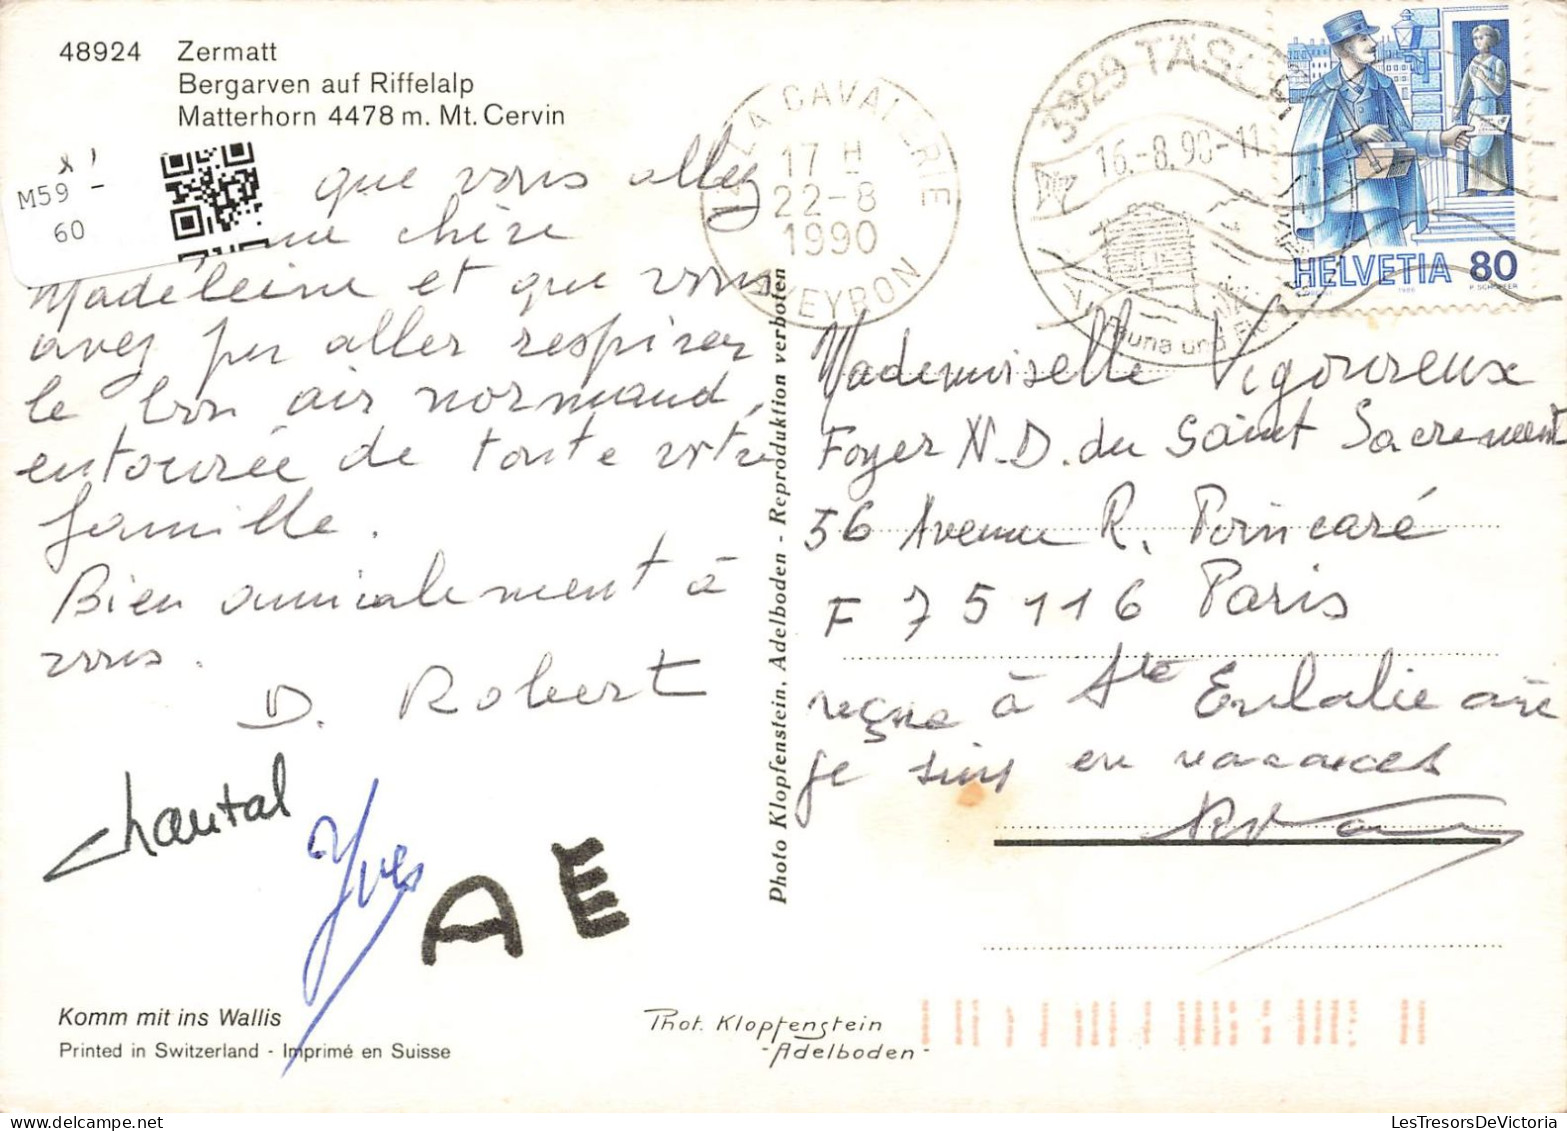 48924 Zermatt
Bergarven auf Riffelalp
Matterhorn 4478 m. Mt. Cervin
M59 -
60
que vous allez
chère
Madeleine et que vous
avez pu aller respirer
le bon air normand,
entourée de toute votre
famille.
Bien amicalement à
vous.
D. Robert
Chantal
Yves
A E
Komm mit ins Wallis
Printed in Switzerland - Imprimé en Suisse
Photo Klopfenstein, Adelboden - Reproduktion verboten
Phot. Klopfenstein
- Adelboden -
LA CAVALERIE
17 H
22-8
1990
AVEYRON
3929 TÄSCH
16.-8.90-11
HELVETIA 80
Mademoiselle Vigoureux
Foyer N.D. du Saint Sacrement
56 Avenue R. Poincaré
F 75116 Paris
reçue à Ste Eulalie où
je suis en vacances
LesTresorsDeVictoria